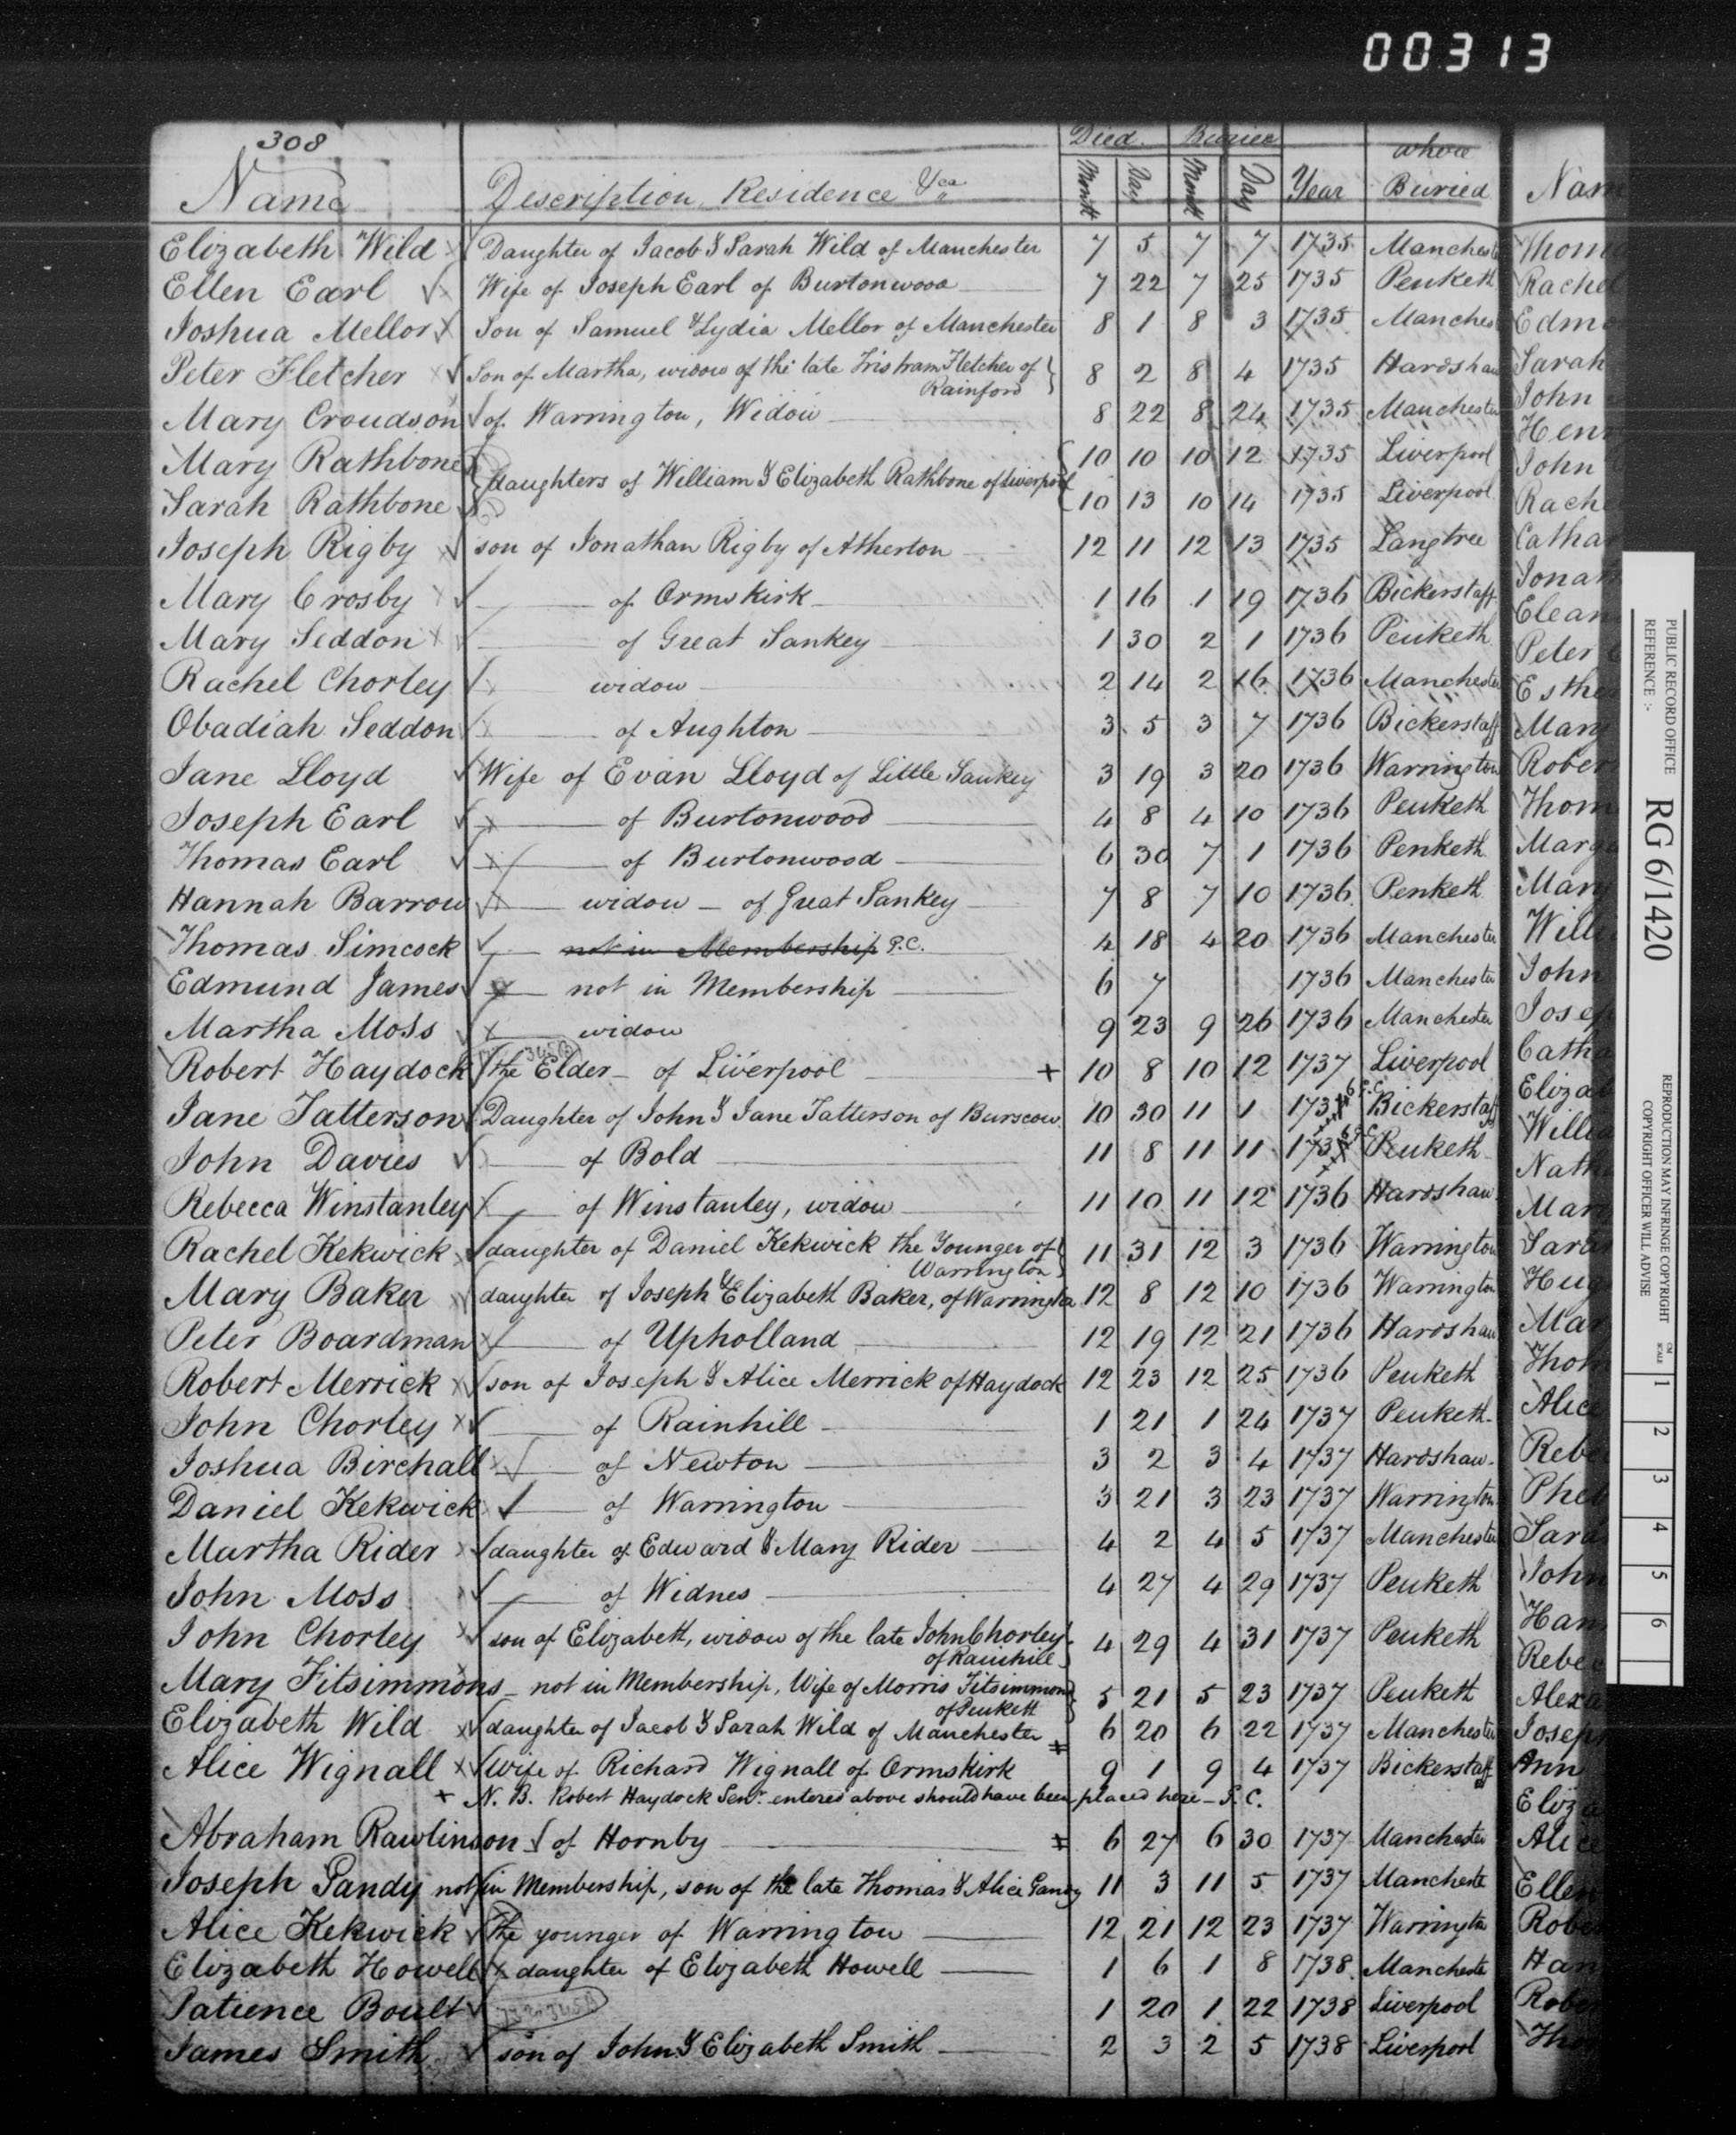 00313
308
Died. Buried
Name Description, Residence &ca Month Day Month Day Year where Buried Nam
Elizabeth Wild Daughter of Jacob & Sarah Wild of Manchester 7 5 7 7 1735 Manchester
Ellen Earl Wife of Joseph Earl of Burtonwood 7 22 7 25 1735 Penketh
Joshua Mellor Son of Samuel & Lydia Mellor of Manchester 8 1 8 3 1735 Manchest
Peter Fletcher Son of Martha, widow of the late Tristram Fletcher of
Rainford 8 2 8 4 1735 Hardshaw
Mary Croudson of Warrington, Widow 8 22 8 24 1735 Manchester
Mary Rathbone 10 10 10 12 1735 Liverpool
daughters of William & Elizabeth Rathbone of Liverpool
Sarah Rathbone 10 13 10 14 1735 Liverpool
Joseph Rigby son of Jonathan Rigby of Atherton 12 11 12 13 1735 Langtree
Mary Crosby of Ormskirk 1 16 1 19 1736 Bickerstaff
Mary Seddon of Great Sankey 1 30 2 1 1736 Penketh
Rachel Chorley widow 2 14 2 16 1736 Manchester
Obadiah Seddon of Aughton 3 5 3 7 1736 Bickerstaff
Jane Lloyd Wife of Evan Lloyd of Little Sankey 3 19 3 20 1736 Warrington
Joseph Earl of Burtonwood 4 8 4 10 1736 Penketh
Thomas Earl of Burtonwood 6 30 7 1 1736 Penketh
Hannah Barrow widow – of Great Sankey 7 8 7 10 1736 Penketh
Thomas Simcock not in Membership P.C. 4 18 4 20 1736 Manchester
Edmund James not in Membership 6 7 1736 Manchester
Martha Moss widow 9 23 9 26 1736 Manchester
Robert Haydock the Elder – of Liverpool + 10 8 10 12 1737 Liverpool
Jane Tatterson Daughter of John & Jane Tatterson of Burscow. 10 30 11 1 1736 Bickerstaff
John Davies of Bold 11 8 11 11 1736 Penketh
Rebecca Winstanley of Winstanley, widow 11 10 11 12 1736 Hardshaw
Rachel Kekwick daughter of Daniel Kekwick the Younger of
Warrington 11 31 12 3 1736 Warrington
Mary Baker daughter of Joseph & Elizabeth Baker, of Warrington 12 8 12 10 1736 Warrington
Peter Boardman of Upholland 12 19 12 21 1736 Hardshaw
Robert Merrick son of Joseph & Alice Merrick of Haydock 12 23 12 25 1736 Penketh
John Chorley of Rainhill 1 21 1 24 1737 Penketh
Joshua Birchall of Newton 3 2 3 4 1737 Hardshaw
Daniel Kekwick of Warrington 3 21 3 23 1737 Warrington
Martha Rider daughter of Edward & Mary Rider 4 2 4 5 1737 Manchester
John Moss of Widnes 4 27 4 29 1737 Penketh
John Chorley son of Elizabeth, widow of the late John Chorley
of Rainhill 4 29 4 31 1737 Penketh
Mary Fitsimmons – not in Membership, Wife of Morris Fitsimmons
of Penketh 5 21 5 23 1737 Penketh
Elizabeth Wild daughter of Jacob & Sarah Wild of Manchester 6 20 6 22 1737 Manchester
Alice Wignall wife of Richard Wignall of Ormskirk 9 1 9 4 1737 Bickerstaff
+ N.B. Robert Haydock Senr. entered above should have been placed here – S.C.
Abraham Rawlinson of Hornby 6 27 6 30 1737 Manchester
Joseph Gandy not in Membership, son of the late Thomas & Alice Gandy 11 3 11 5 1737 Manchester
Alice Kekwick the younger of Warrington 12 21 12 23 1737 Warrington
Elizabeth Howell daughter of Elizabeth Howell 1 6 1 8 1738 Manchester
Patience Boult 1 20 1 22 1738 Liverpool
James Smith son of John & Elizabeth Smith 2 3 2 5 1738 Liverpool
Thom
Rachel
Edmo
Sarah
John
Henr
John
Rache
Cathar
Jonat
Elean
Peter
Esther
Mary
Rober
Thom
Marga
Mary
Willi
John
Josep
Catha
Elizab
Willia
Nath
Mar
Sara
Hug
Mar
Thom
Alice
Rebe
Pheb
Sara
John
Han
Rebec
Alexa
Joseph
Ann
Eliza
Alice
Ellen
Rober
Han
Rober
Tho
PUBLIC RECORD OFFICE
REFERENCE :-
RG 6/1420
REPRODUCTION MAY INFRINGE COPYRIGHT
COPYRIGHT OFFICER WILL ADVISE
CM
SCALE
1
2
3
4
5
6